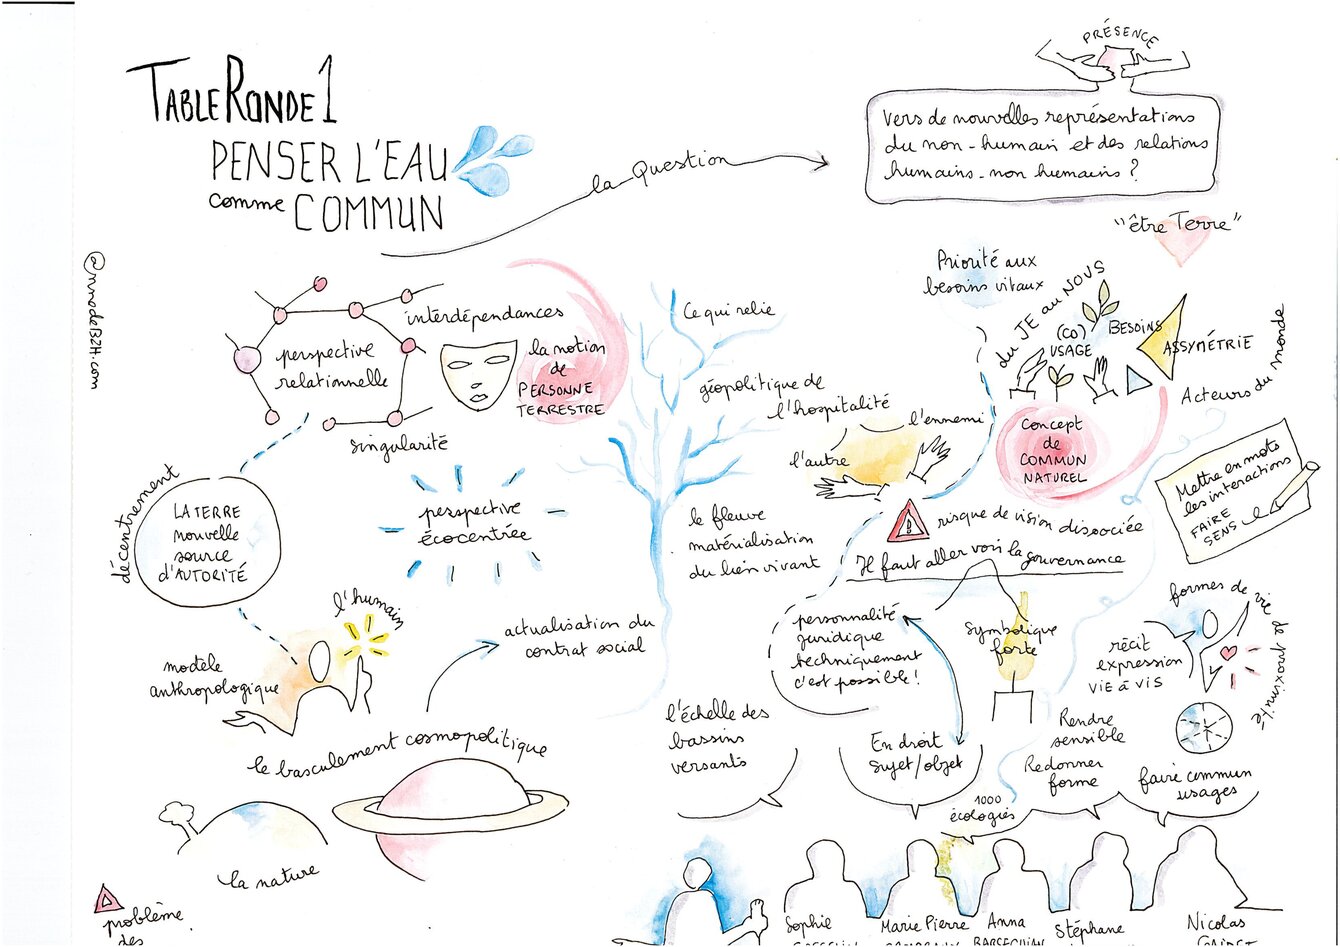 TABLE RONDE 1
PENSER L'EAU
comme COMMUN
la Question
PRÉSENCE
Vers de nouvelles représentations
du non-humain et des relations
humains-non humains ?
"être Terre"
@nnodeBZH.com
interdépendances
perspective
relationnelle
singularité
la notion
de
PERSONNE
TERRESTRE
Ce qui relie
géopolitique de
l'hospitalité
l'ennemi
l'autre
Priorité aux
besoins vitaux
du JE au NOUS
(CO)
USAGE
BESOINS
ASSYMÉTRIE
Acteurs du monde
Concept
de
COMMUN
NATUREL
Mettre en mots
les interactions
FAIRE
SENS
décentrement
LA TERRE
nouvelle
source
d'AUTORITÉ
perspective
écocentrée
le fleuve
matérialisation
du lien vivant
risque de vision dissociée
Il faut aller vers la gouvernance
l'humain
modèle
anthropologique
actualisation du
contrat social
personnalité
juridique
techniquement
c'est possible !
Symbolique
forte
formes de vie de proximité
récit
expression
VIE à VIS
le basculement cosmopolitique
l'échelle des
bassins
versants
En droit
Sujet/objet
Rendre
sensible
Redonner
forme
faire commun
usages
1000
écologies
la nature
problème
des
Sophie
Marie Pierre
Anna
BARSEGHIAN
Stéphane
Nicolas